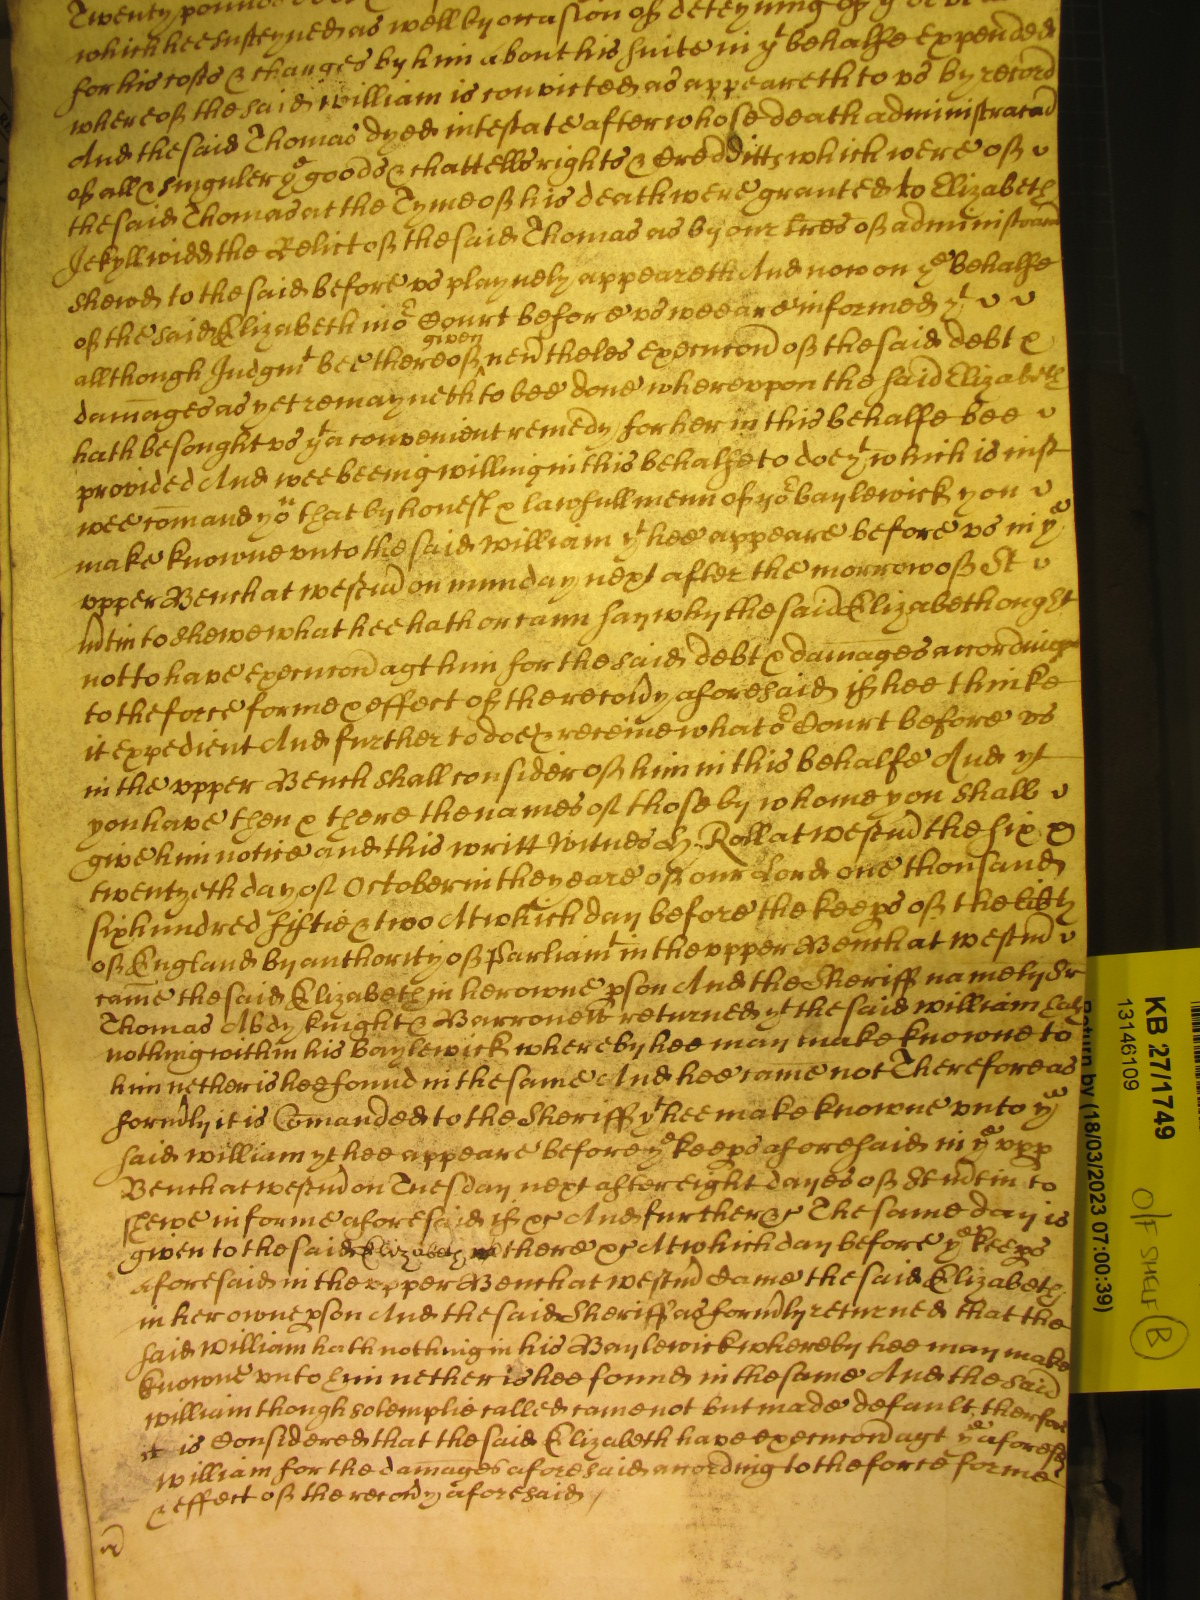 Twenty pounds
which hee susteyned as well by occasion of deteyning of ye debt
for his costs & charges by him about his suite in yt behalfe expended
whereof the said William is convicted as appeareth to vs by record
And the said Thomas dyed intestate after whose death administracõn
of all & singuler ye goods & chattells rights & Credditts which were of
the said Thomas at the Tyme of his death were granted to Elizabeth
Jekyll widd the Relict of the said Thomas as by our lres of administracõn
shewed to the said before vs playnely appeareth And now on ye behalfe
of the said Elizabeth in or Court before vs wee are informed yt
allthough Judgmt bee thereof given nevtheles execucon of the said debt &
damages as yet remayneth to bee done wherevppon the said Elizabeth
hath besought vs yt a convenient remedy for her in this behalfe bee
provided And wee beeing willing in this behalfe to doe yt which is iust
wee comand yow that by honest & lawfull menn of yor baylewick you
make knowne vnto the said William yt hee appeare before vs in ye
vpper Bench at Westmr on munday next after the morrow of St
Mrtin to shewe what hee hath or cann say why the said Elizabeth ought
not to have execucon agt him for the said debt & damages according
to the force forme & effect of the recovy aforesaid if hee thinke
it expedient And further to doe & receive what or Court before vs
in the vpper Bench shall consider of him in this behalfe And yt
you have then & there the names of those by whome you shall
give him notice and this writt Witnes H: Roll at Westmr the six &
twentyeth day of October in the yeare of our Lord one thousand
six hundred fiftie & two At which day before the keeps of the libty
of England by authority of Parliamt in the vpper Bench at Westmr
came the said Elizabeth in her owne pson And the Sheriff namely Sr
Thomas Abdy knight & Barronett returned yt the said William hath
nothing within his Baylewick whereby hee may make knowne to
him nether is hee found in the same And hee came not Therefore as
formly it is Comanded to the Sheriff yt hee make knowne vnto ye
said William yt hee appeare before ye keeps aforesaid in ye vpp
Bench at Westmr on Tuesday next after eight dayes of St Mrtin to
shewe in forme aforesaid if &c And further &c The same day is
given to the said Elizabeth there &c At which day before ye keeps
aforesaid in the vpper Bench at Westmr Came the said Elizabeth
in her owne pson And the said Sheriff as formly returned that the
said William hath nothing in his Baylewick whereby hee may make
knowne vnto him nether is hee found in the same And the said
William though solemplie called came not but made default therfore
it is Considered that the said Elizabeth have execucon agt ye aforesd
William for the damages aforesaid according to the force forme
& effect of the recovy aforesaid
KB 27/1749
13146109
Return by (18/03/2023 07:00:39)
O/F SHELF B